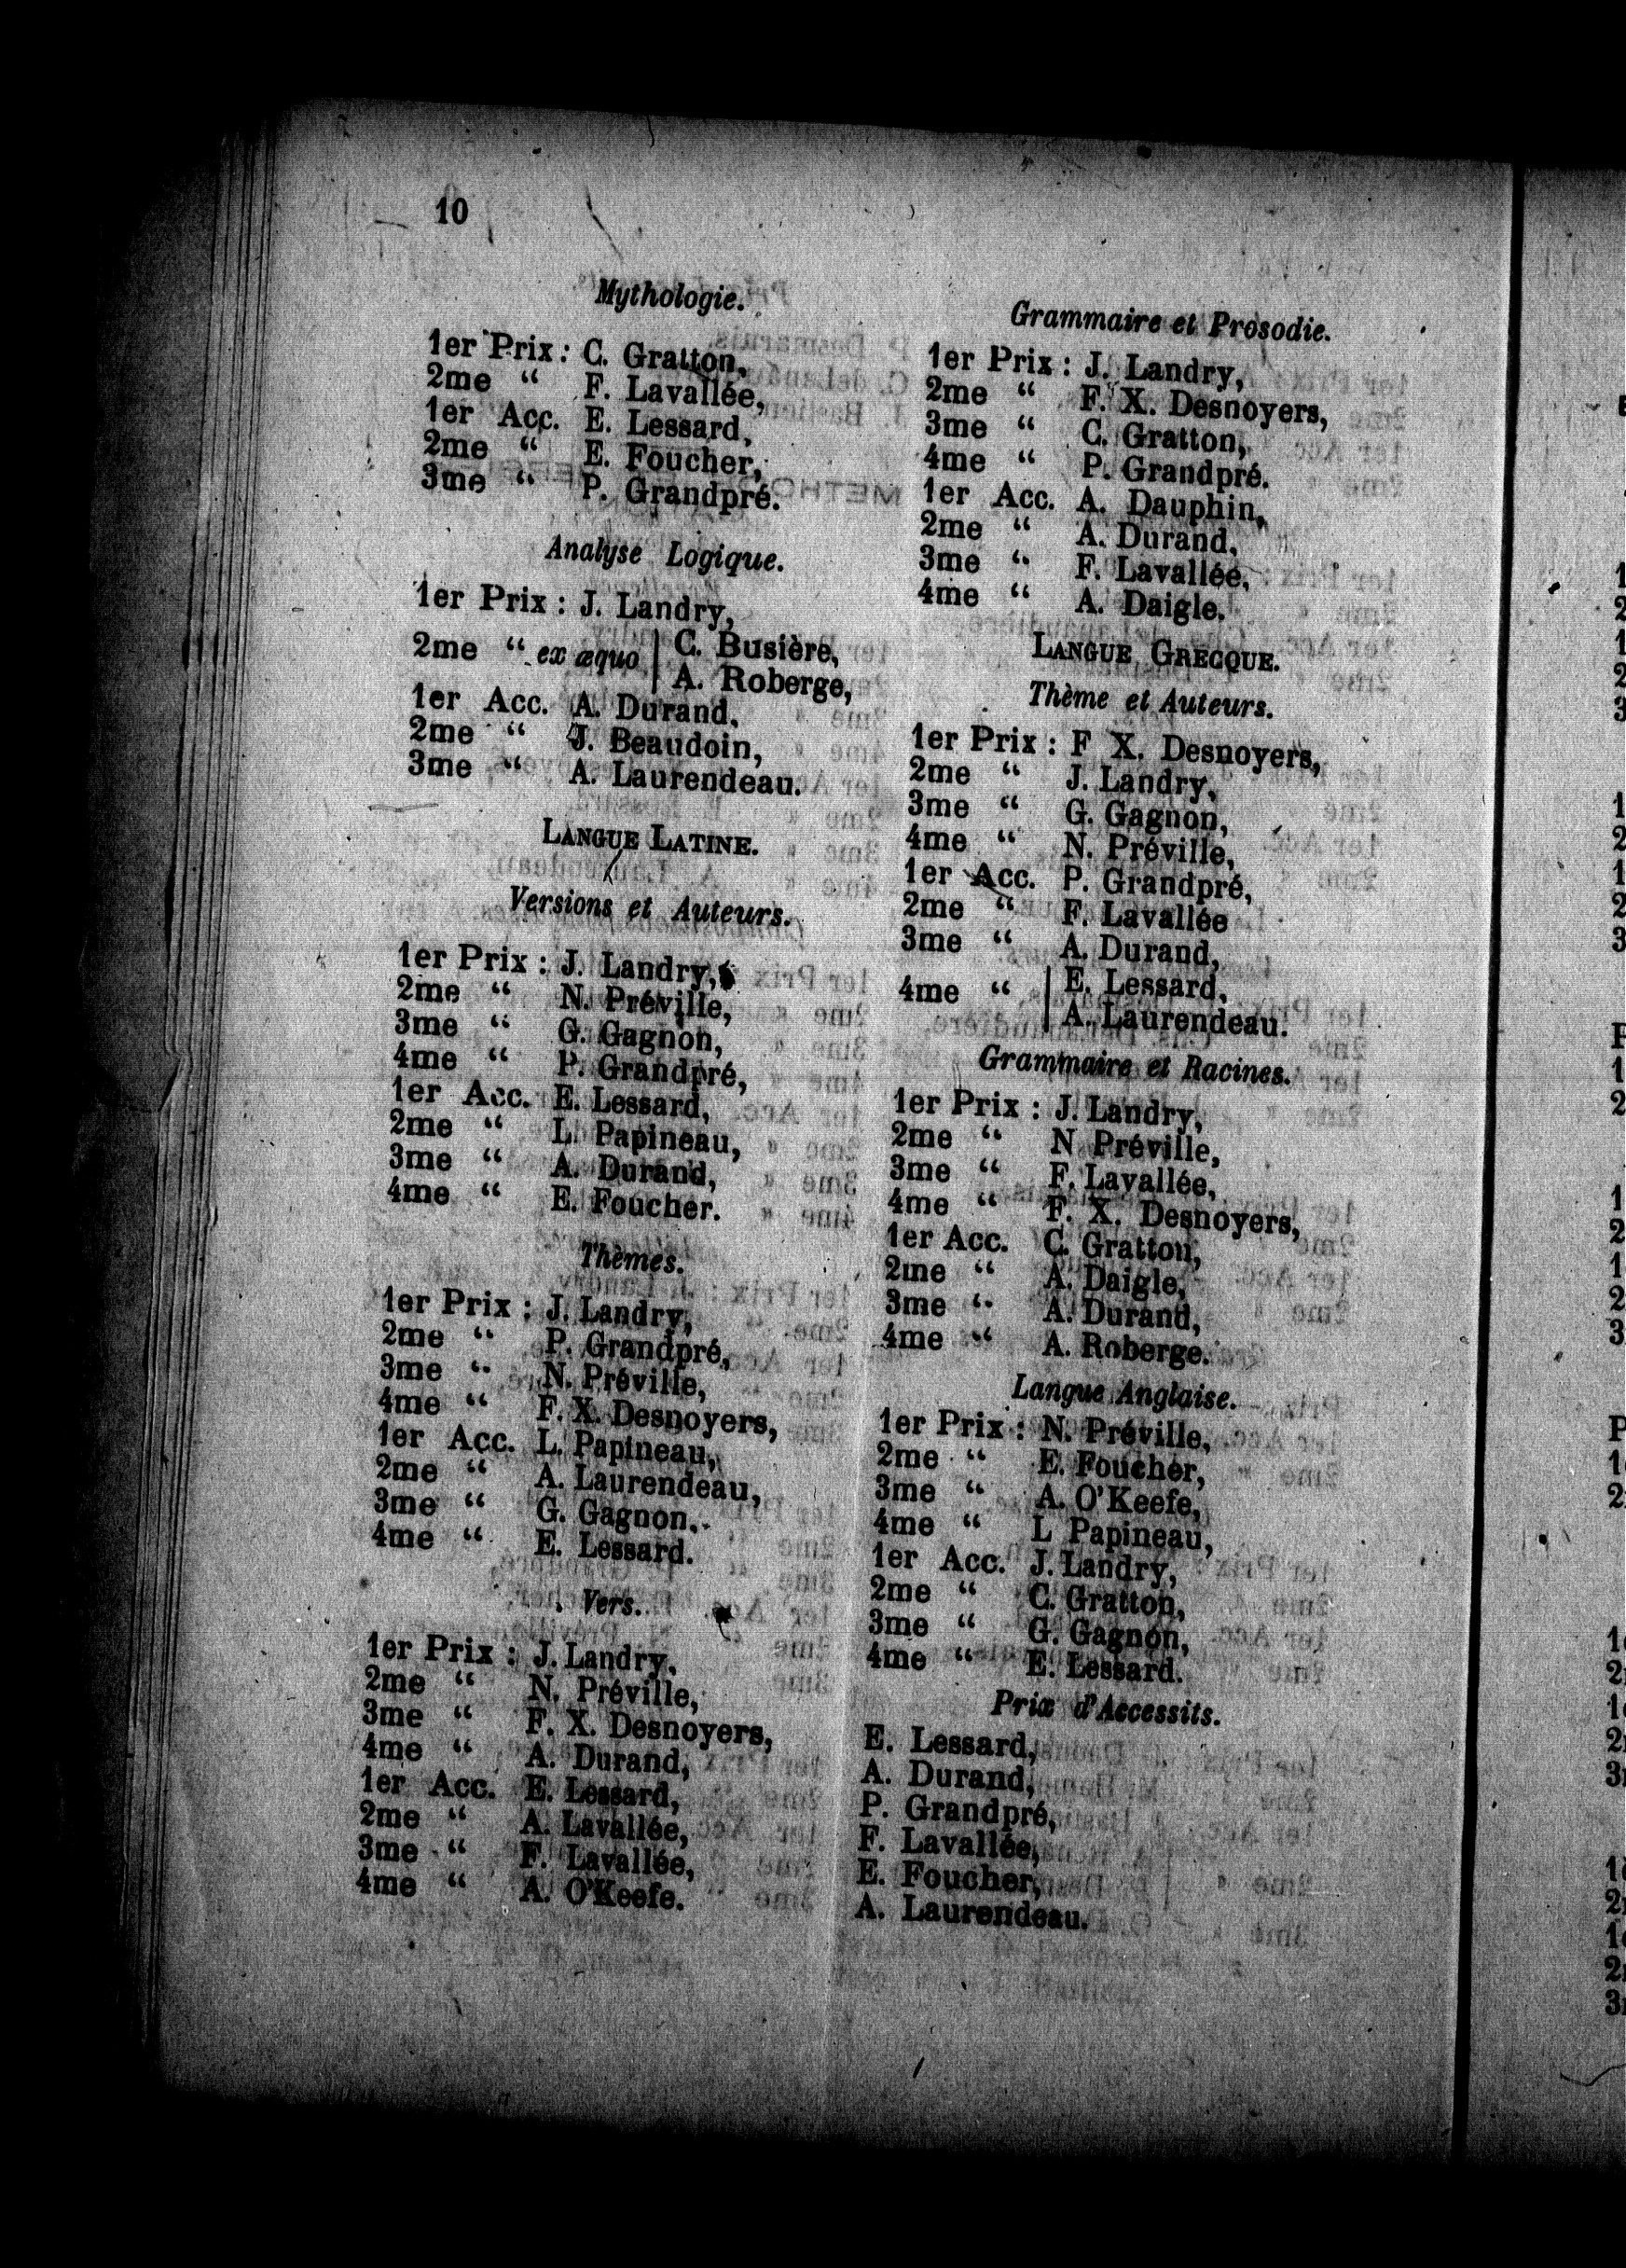 10
Mythologie.
1er Prix : C. Gratton,
2me “ F. Lavallée,
1er Acc. E. Lessard,
2me “ E. Foucher,
3me “ P. Grandpré.
Analyse Logique.
1er Prix : J. Landry,
2me “ ex æquo | C. Busière,
A. Roberge,
1er Acc. A. Durand,
2me “ J. Beaudoin,
3me “ A. Laurendeau.
LANGUE LATINE.
Versions et Auteurs.
1er Prix : J. Landry,
2me “ N. Préville,
3me “ G. Gagnon,
4me “ P. Grandpré,
1er Acc. E. Lessard,
2me “ L. Papineau,
3me “ A. Durand,
4me “ E. Foucher.
Thèmes.
1er Prix : J. Landry,
2me “ P. Grandpré,
3me “ N. Préville,
4me “ F. X. Desnoyers,
1er Acc. L. Papineau,
2me “ A. Laurendeau,
3me “ G. Gagnon,
4me “ E. Lessard.
Vers.
1er Prix : J. Landry,
2me “ N. Préville,
3me “ F. X. Desnoyers,
4me “ A. Durand,
1er Acc. E. Lessard,
2me “ A. Lavallée,
3me “ F. Lavallée,
4me “ A. O'Keefe.
Grammaire et Prosodie.
1er Prix : J. Landry,
2me “ F. X. Desnoyers,
3me “ C. Gratton,
4me “ P. Grandpré.
1er Acc. A. Dauphin,
2me “ A. Durand,
3me “ F. Lavallée,
4me “ A. Daigle.
LANGUE GRECQUE.
Thème et Auteurs.
1er Prix : F X. Desnoyers,
2me “ J. Landry,
3me “ G. Gagnon,
4me “ N. Préville,
1er Acc. P. Grandpré,
2me “ F. Lavallée
3me “ A. Durand,
4me “ | E. Lessard,
A. Laurendeau.
Grammaire et Racines.
1er Prix : J. Landry,
2me “ N Préville,
3me “ F. Lavallée,
4me “ F. X. Desnoyers,
1er Acc. C. Gratton,
2me “ A. Daigle,
3me “ A. Durand,
4me “ A. Roberge.
Langue Anglaise.
1er Prix : N. Préville,
2me “ E. Foucher,
3me “ A. O'Keefe,
4me “ L Papineau,
1er Acc. J. Landry,
2me “ C. Gratton,
3me “ G. Gagnon,
4me “ E. Lessard.
Prix d'Accessits.
E. Lessard,
A. Durand,
P. Grandpré,
F. Lavallée,
E. Foucher,
A. Laurendeau.